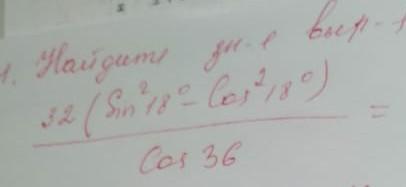 1. Найдите зн-е выр-я
32 (Sin²18° - Cos²18°)
Cos 36
=